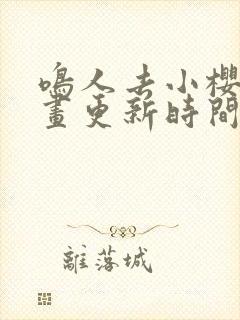 鳴人去小櫻
畫更新時間
離落城